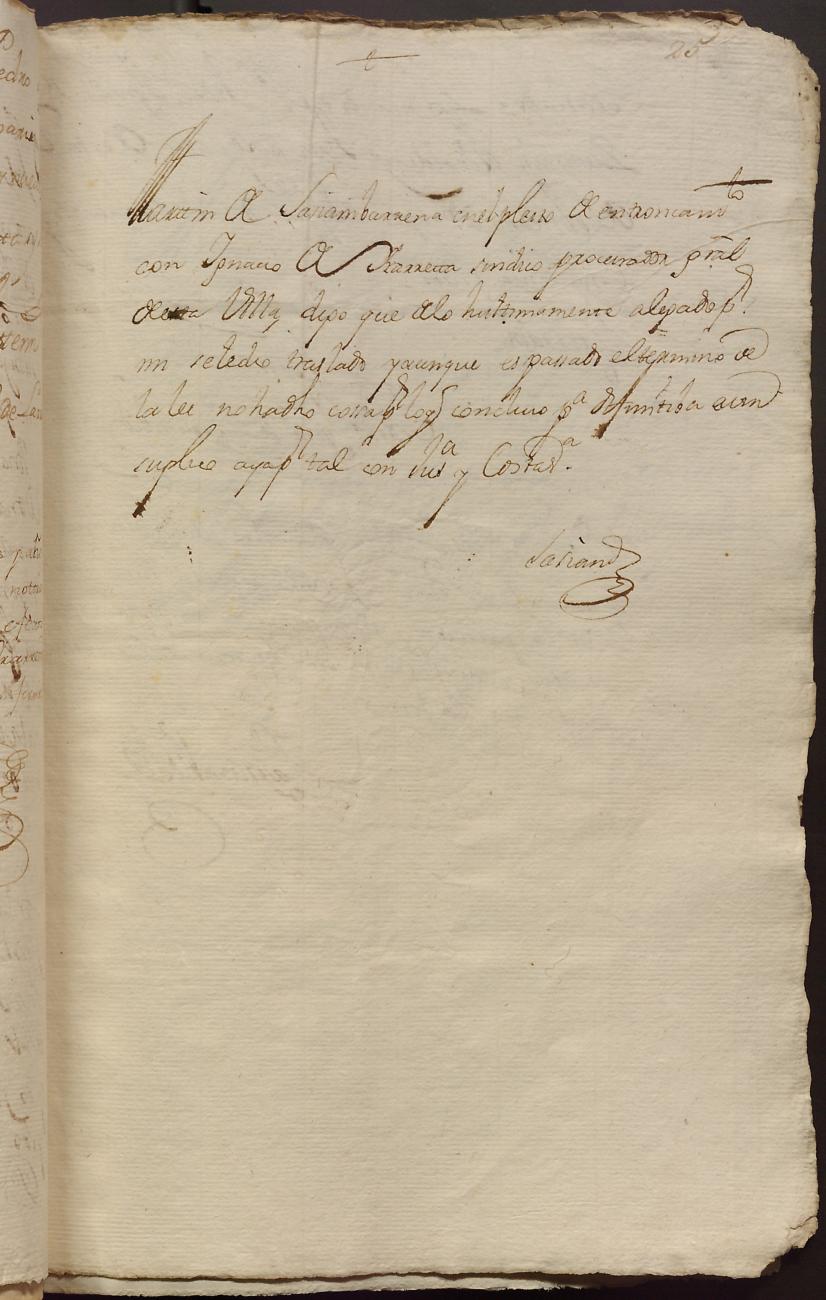 25
Martin de Sariambarrena en el pleito de entroncam.to
con Ignacio de Ytarreta sindico procurador gñral
de esta Villa, digo que de lo hultimamente alegado p.r
mi se le dio traslado y aunque es passado el termino de
la lei no ha dho cossa p.r lo q concluio p.a difinitiba a um
suplico aya p.r tal con Jus.a y Costas.a
Sarian